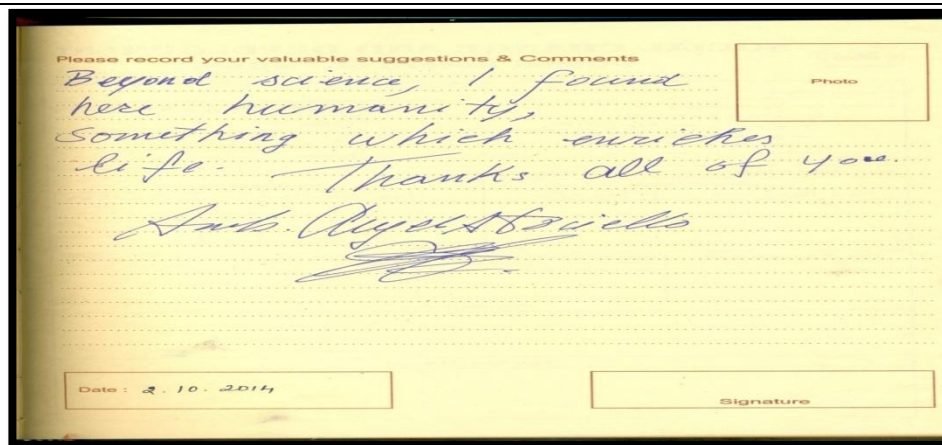 Please record your valuable suggestions & Comments
Photo
Beyond science, I found
here humanity,
something which enriches
life. Thanks all of you.
Amb.
Date : 2.10.2014
Signature